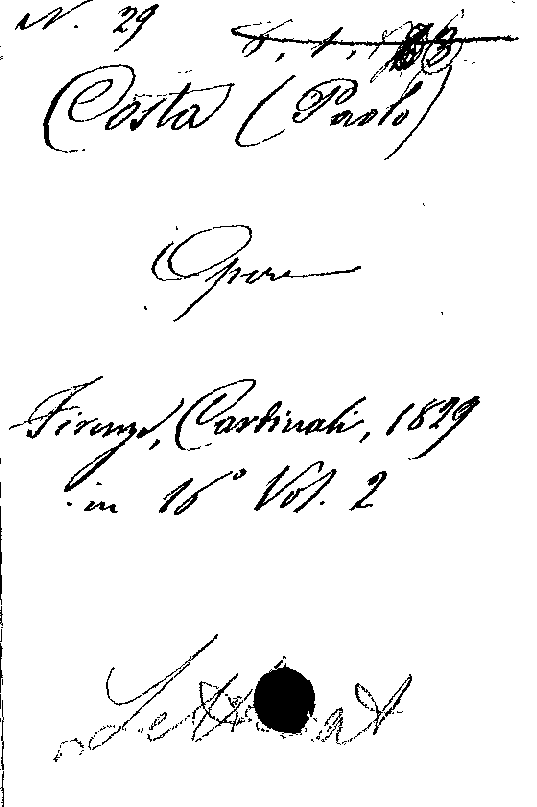 N. 29
Costa (Paolo)
Opere
Firenze, Cardinali, 1829
in 16° Vol. 2